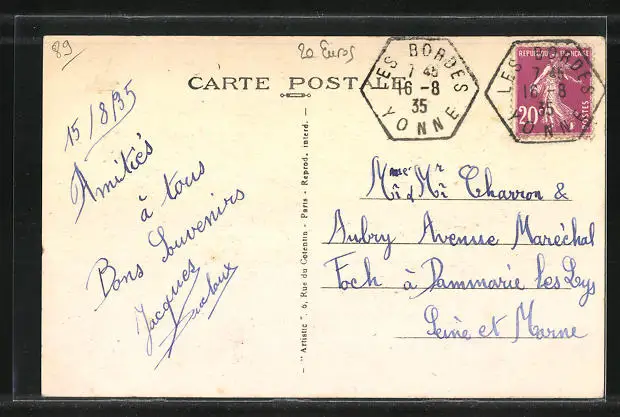 89
20 Euros
CARTE POSTALE
LES BORDES
7 45
16 -8
35
YONNE
LES BORDES
7 45
16 -8
35
YONNE
REPUBLIQUE FRANÇAISE
20
POSTES
15/8/35
Amitiés
à tous
Bons Souvenirs
Jacques
"Artistic", 6, Rue du Cotentin - Paris - Reprod. interd.
Mme Mr Charron &
Aubry Avenue Maréchal
Foch à Dammarie les Lys
Seine et Marne